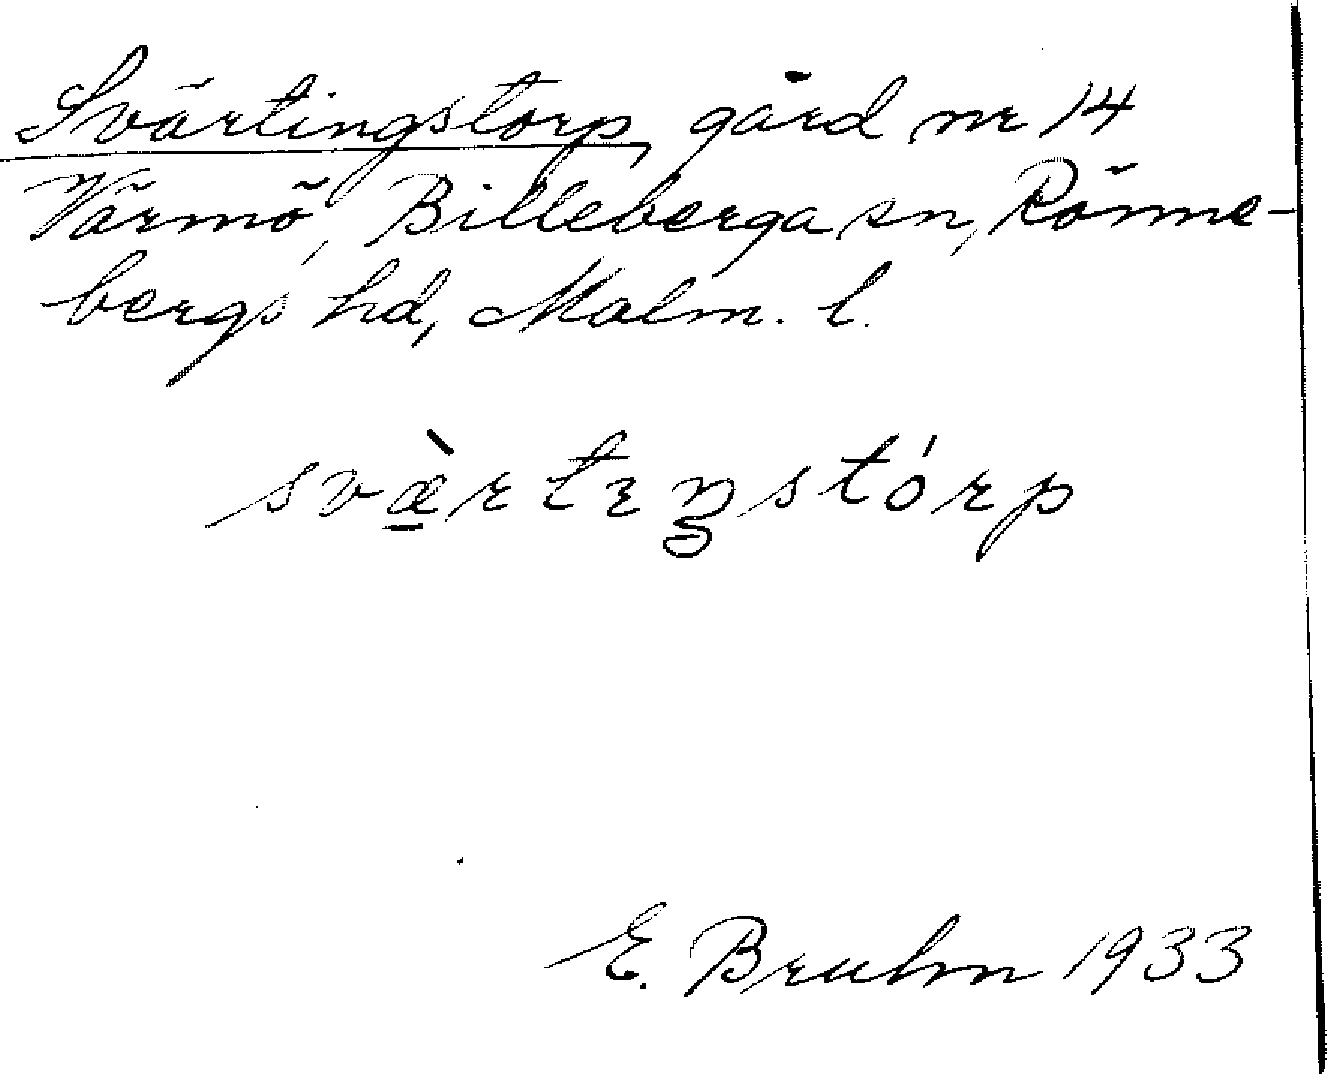 Svärtingstorp, gård nr 14
Värmö, Billeberga sn, Rönne-
bergs hd, Malm. l.
svæ̠̀rtɪŋstórp
E. Bruhn 1933